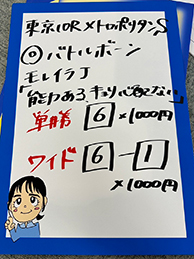 東京10RメトロポリタンS
◎バトルボーン
モレイラJ
「能力ある、キョリ心配なし」
単勝 6×1000円
ワイド 6-1
×1000円